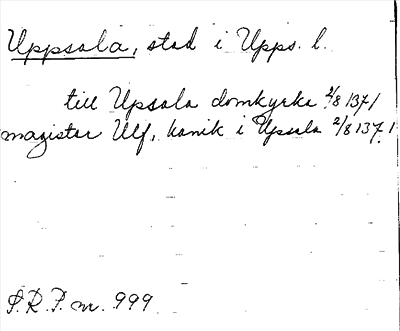 Uppsala, stad i Upps. l.
till Upsala domkyrka 2/8 1371
magister Ulf, kanik i Upsala 2/8 1371.
S.R.P. nr. 999